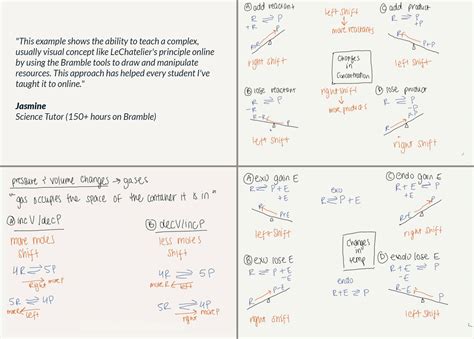 "This example shows the ability to teach a complex,
usually visual concept like LeChatelier's principle online
by using the Bramble tools to draw and manipulate
resources. This approach has helped every student I've
taught it to online."
Jasmine
Science Tutor (150+ hours on Bramble)
Ⓐ add reactant
R ⇌ P
right shift
Ⓑ lose reactant
R ⇌ P
left shift
left shift
more reactants
Changes
in
Concentration
right shift
more products
Ⓒ add product
R ⇌ P
left shift
Ⓓ lose product
R ⇌ P
right shift
pressure & volume changes → gases
"gas occupies the space of the container it is in"
Ⓐ incV/decP
more moles
shift
4R ⇌ 5P
right more P
5R ⇌ 4P
more R left
Ⓑ decV/incP
less moles
shift
4R ⇌ 5P
5R ⇌ 4P
right
Ⓐ exo gain E
R ⇌ P+E
left shift
Ⓑ exo lose E
R ⇌ P+E
right shift
exo
R ⇌ P+E
Changes
in
temp
endo
R+E ⇌ P
Ⓒ endo gain E
R+E ⇌ P
right shift
Ⓓ endo lose E
R+E ⇌ P
left shift